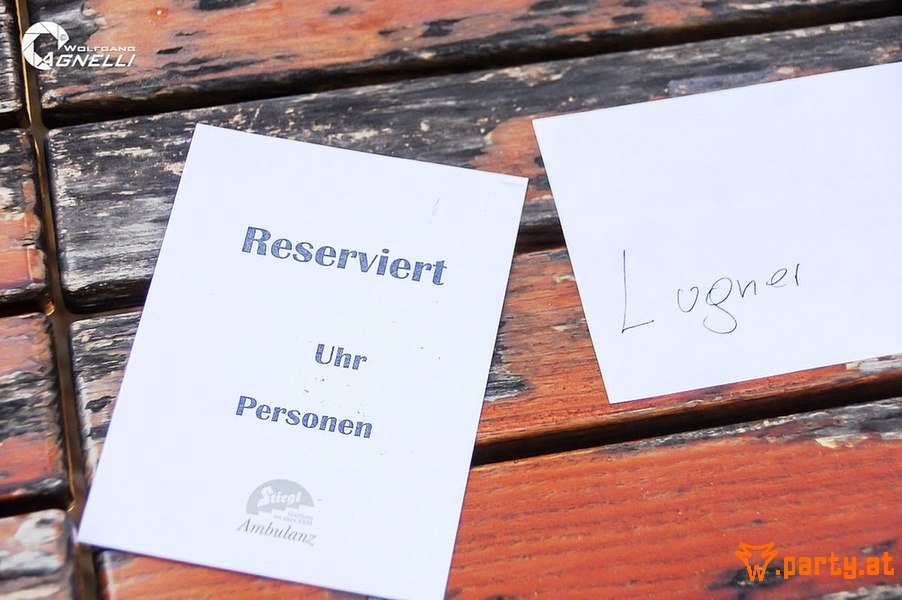 WOLFGANG
AGNELLI
Reserviert
Uhr
Personen
Stiegl
Ambulanz
Lugner
.party.at